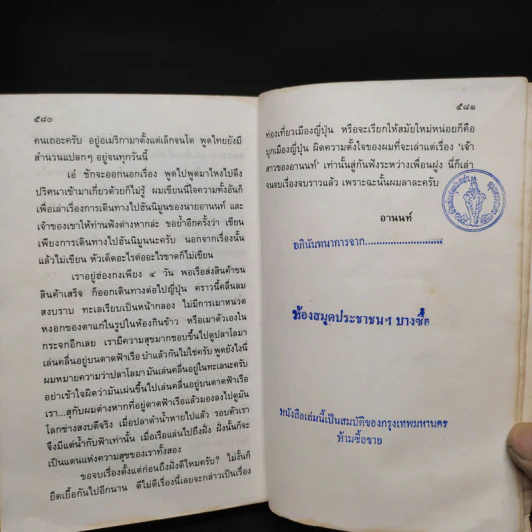 ๕๘๐
คนเถอะครับ อยู่อเมริกามาตั้งแต่เล็กจนโต พูดไทยยังมี
สำนวนแปลกๆ อยู่จนทุกวันนี้
เอ๋ ชักจะออกนอกเรื่อง พูดไปพูดมาไหงไปดึง
ปริศนาเข้ามาเกี่ยวด้วยก็ไม่รู้ ผมเขียนนี่ใจความทั้งอันก็
เพื่อเล่าเรื่องการเดินทางไปฮันนิมูนของนายอานนท์ และ
เจ้าของเขาให้ท่านฟังต่างหากล่ะ ขอย้ำอีกครั้งว่า เขียน
เพียงการเดินทางไปฮันนิมูนนะครับ นอกจากเรื่องนั้น
แล้วไม่เขียน หัวเด็ดอะไรต่ออะไรขาดก็ไม่เขียน
เราอยู่ฮ่องกงเพียง ๔ วัน พอเรือส่งสินค้าขน
สินค้าเสร็จ ก็ออกเดินทางต่อไปญี่ปุ่น คราวนี้คลื่นลม
สงบราบ ทะเลเรียบเป็นหน้ากลอง ไม่มีการเมาหนวด
หงอกของตาแก่ในรูปในห้องกินข้าว หรือเมาตัวเองใน
กระจกอีกเลย เรามีความสุขมากชอบขึ้นไปดูปลาโลมา
เล่นคลื่นอยู่บนดาดฟ้าเรือ บ๊ะแล้วกันไม่ใช่ครับ พูดยังไงนี่
ผมหมายความว่าปลาโลมามันเล่นคลื่นอยู่ในทะเลนะครับ
อย่าเข้าใจผิดว่ามันเผ่นขึ้นไปเล่นคลื่นอยู่บนดาดฟ้าเรือ
เรา...สุกับผมต่างหากที่อยู่ดาดฟ้าเรือแล้วมองลงไปดูมัน
โลกช่างสงบดีจริง เมื่อปลาดำน้ำหายไปแล้ว รอบตัวเรา
จึงมีแต่น้ำกับฟ้าเท่านั้น เมื่อเรือแล่นไปถึงฝั่ง ฝั่งนั้นก็จะ
เป็นแดนแห่งความสุขของเราทั้งสอง
ขอจบเรื่องตั้งแต่ก่อนถึงฝั่งดีไหมครับ? ไม่งั้นก็
ยืดเยื้อกันไปอีกนาน ดีไม่ดีเรื่องนี้เลยจะกล่าวเป็นเรื่อง
๕๘๑
ท่องเที่ยวเมืองญี่ปุ่น หรือจะเรียกให้สมัยใหม่หน่อยก็คือ
บุกเมืองญี่ปุ่น ผิดความตั้งใจของผมที่จะเล่าแต่เรื่อง ‘เจ้า
สาวของอานนท์’ เท่านั้นสู่กันฟังระหว่างเพื่อนฝูง นี่ก็เล่า
จนจบเรื่องจบราวแล้ว เพราะฉะนั้นผมลาละครับ
อานนท์
อภินันทนาการจาก............................
ห้องสมุดประชาชนฯ บางซื่อ
หนังสือเล่มนี้เป็นสมบัติของกรุงเทพมหานคร
ห้ามซื้อขาย